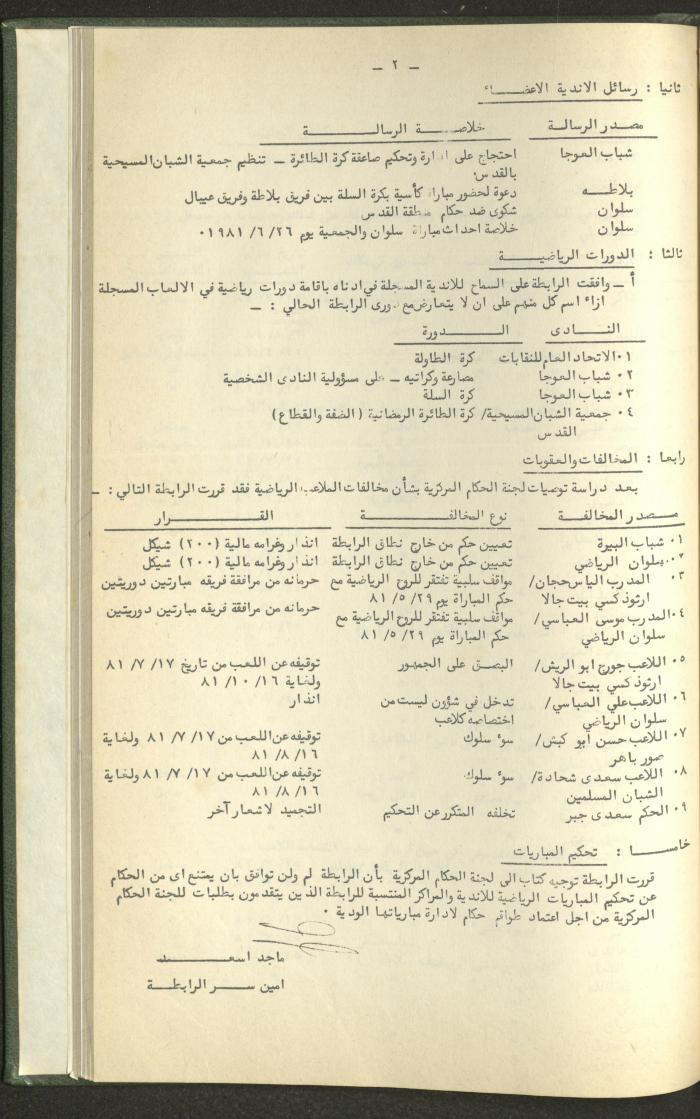 - ٢ -
ثانيا : رسائل الاندية الاعضاء
مصدر الرسالة خلاصة الرسالة
شباب العوجا احتجاج على ادارة وتحكيم صاعقة كرة الطائرة - تنظيم جمعية الشبان المسيحية
بالقدس.
بلاطه دعوة لحضور مباراة كأسية بكرة السلة بين فريق بلاطة وفريق عيبال
سلوان شكوى ضد حكام منطقة القدس
سلوان خلاصة احداث مباراة سلوان والجمعية يوم ٢٦/ ٦/ ١٩٨١٠
ثالثا : الدورات الرياضية
أ - وافقت الرابطة على السماح للاندية المسجلة في ادناه باقامة دورات رياضية في الالعاب المسجلة
ازاء اسم كل منهم على ان لا يتعارض مع دورى الرابطة الحالي : -
النادى الدورة
٠١ الاتحاد العام للنقابات كرة الطاولة
٠٢ شباب العوجا مصارعة وكراتيه - على مسؤولية النادى الشخصية
٠٣ شباب العوجا كرة السلة
٠٤ جمعية الشبان المسيحية/ كرة الطائرة الرمضانية ( الضفة والقطاع )
القدس
رابعا : المخالفات والعقوبات
بعد دراسة توصيات لجنة الحكام المركزية بشأن مخالفات الملاعب الرياضية فقد قررت الرابطة التالي : -
مصدر المخالفة نوع المخالفة القرار
٠١ شباب البيرة تعيين حكم من خارج نطاق الرابطة انذار وغرامه مالية (٢٠٠) شيكل
٠٢ سلوان الرياضي تعيين حكم من خارج نطاق الرابطة انذار وغرامه مالية (٢٠٠) شيكل
٠٣ المدرب الياس حجان/ مواقف سلبية تفتقر للروح الرياضية مع حرمانه من مرافقة فريقه مبارتين دوريتين
ارثوذكسي بيت جالا حكم المباراة يوم ٢٩/ ٥/ ٨١
٠٤ المدرب موسى العباسي/ مواقف سلبية تفتقر للروح الرياضية مع حرمانه من مرافقة فريقه مبارتين دوريتين
سلوان الرياضي حكم المباراة يوم ٢٩/ ٥/ ٨١
٠٥ اللاعب جورج ابو الريش/ البصق على الجمهور توقيفه عن اللعب من تاريخ ١٧/ ٧/ ٨١
ارثوذكسي بيت جالا ولغاية ١٦/ ١٠/ ٨١
٠٦ اللاعب علي العباسي/ تدخل في شؤون ليست من انذار
سلوان الرياضي اختصاصه كلاعب
٠٧ اللاعب حسن ابو كبش/ سوء سلوك توقيفه عن اللعب من ١٧/ ٧/ ٨١ ولغاية
صور باهر ١٦/ ٨/ ٨١
٠٨ اللاعب سعدى شحادة/ سوء سلوك توقيفه عن اللعب من ١٧/ ٧/ ٨١ ولغاية
الشبان المسلمين ١٦/ ٨/ ٨١
٠٩ الحكم سعدى جبر تخلفه المتكرر عن التحكيم التجميد لاشعار آخر
خامسا : تحكيم المباريات
قررت الرابطة توجيه كتاب الى لجنة الحكام المركزية بأن الرابطة لم ولن توافق بان يمتنع اى من الحكام
عن تحكيم المباريات الرياضية للاندية والمراكز المنتسبة للرابطة الذين يتقدمون بطلبات للجنة الحكام
المركزية من اجل اعتماد طواقم حكام لادارة مبارياتها الودية ٠
ماجد اسعد
امين سر الرابطة